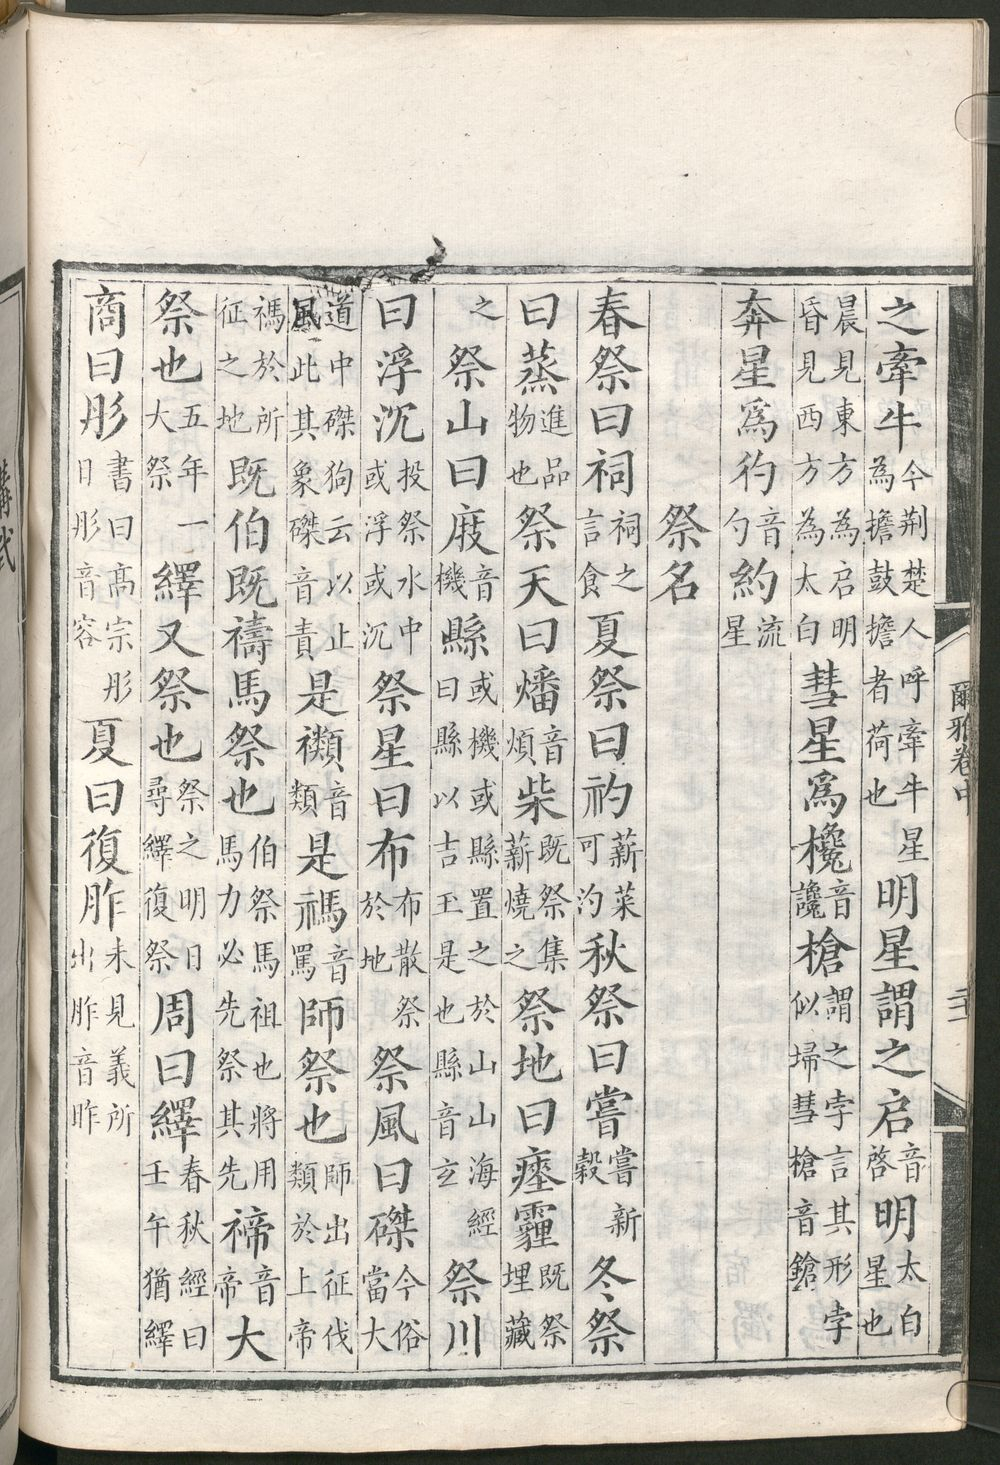 之牽牛今荊楚人呼牽牛星為擔鼓擔者荷也明星謂之启音啓明太白星也
晨見東方為启明昏見西方為太白彗星爲欃音讒槍謂之孛言其形孛似埽彗槍音鎗
奔星爲彴音勺約流星
祭名
春祭曰祠祠之言食夏祭曰礿薪菜可汋秋祭曰嘗嘗新穀冬祭
曰蒸進品物也祭天曰燔音煩柴既祭集薪燒之祭地曰瘞薶既祭埋藏
之祭山曰庪音機縣或機或縣置之於山山海經曰縣以吉玉是也縣音玄祭川
曰浮沉投祭水中或浮或沉祭星曰布布散祭於地祭風曰磔今俗當大
道中磔狗云以止風此其象磔音責是禷音類是禡音罵師祭也師出征伐類於上帝
禡於所征之地既伯既禱馬祭也伯祭馬祖也將用馬力必先祭其先禘音帝大
祭也五年一大祭繹又祭也祭之明日尋繹復祭周曰繹春秋經曰壬午猶繹
商曰肜書曰高宗肜日肜音容夏曰復胙未見義所出胙音昨
爾雅卷中
二十
講武